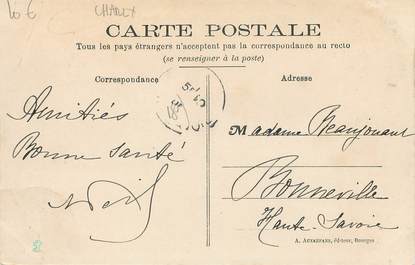 10 €
CARTE POSTALE
Tous les pays étrangers n'acceptent pas la correspondance au recto
(se renseigner à la poste)
Correspondance
Adresse
Amitiés
Bonne Santé
Madame Beaujouant
Bonneville
Haute-Savoie
A. AUXENFANS, éditeur, Bourges